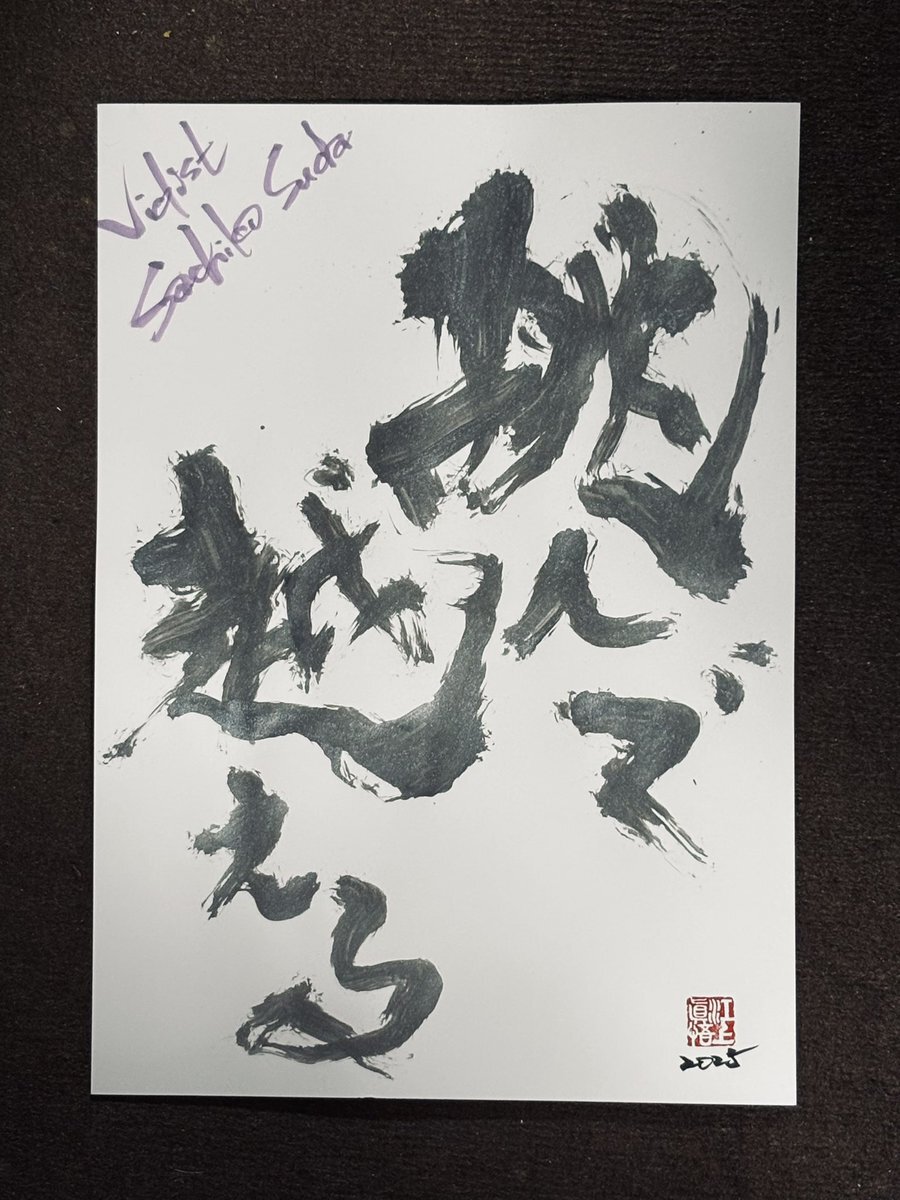 Violist
Sachiko Suda
挑んで
越える
江上
眞悟
2025